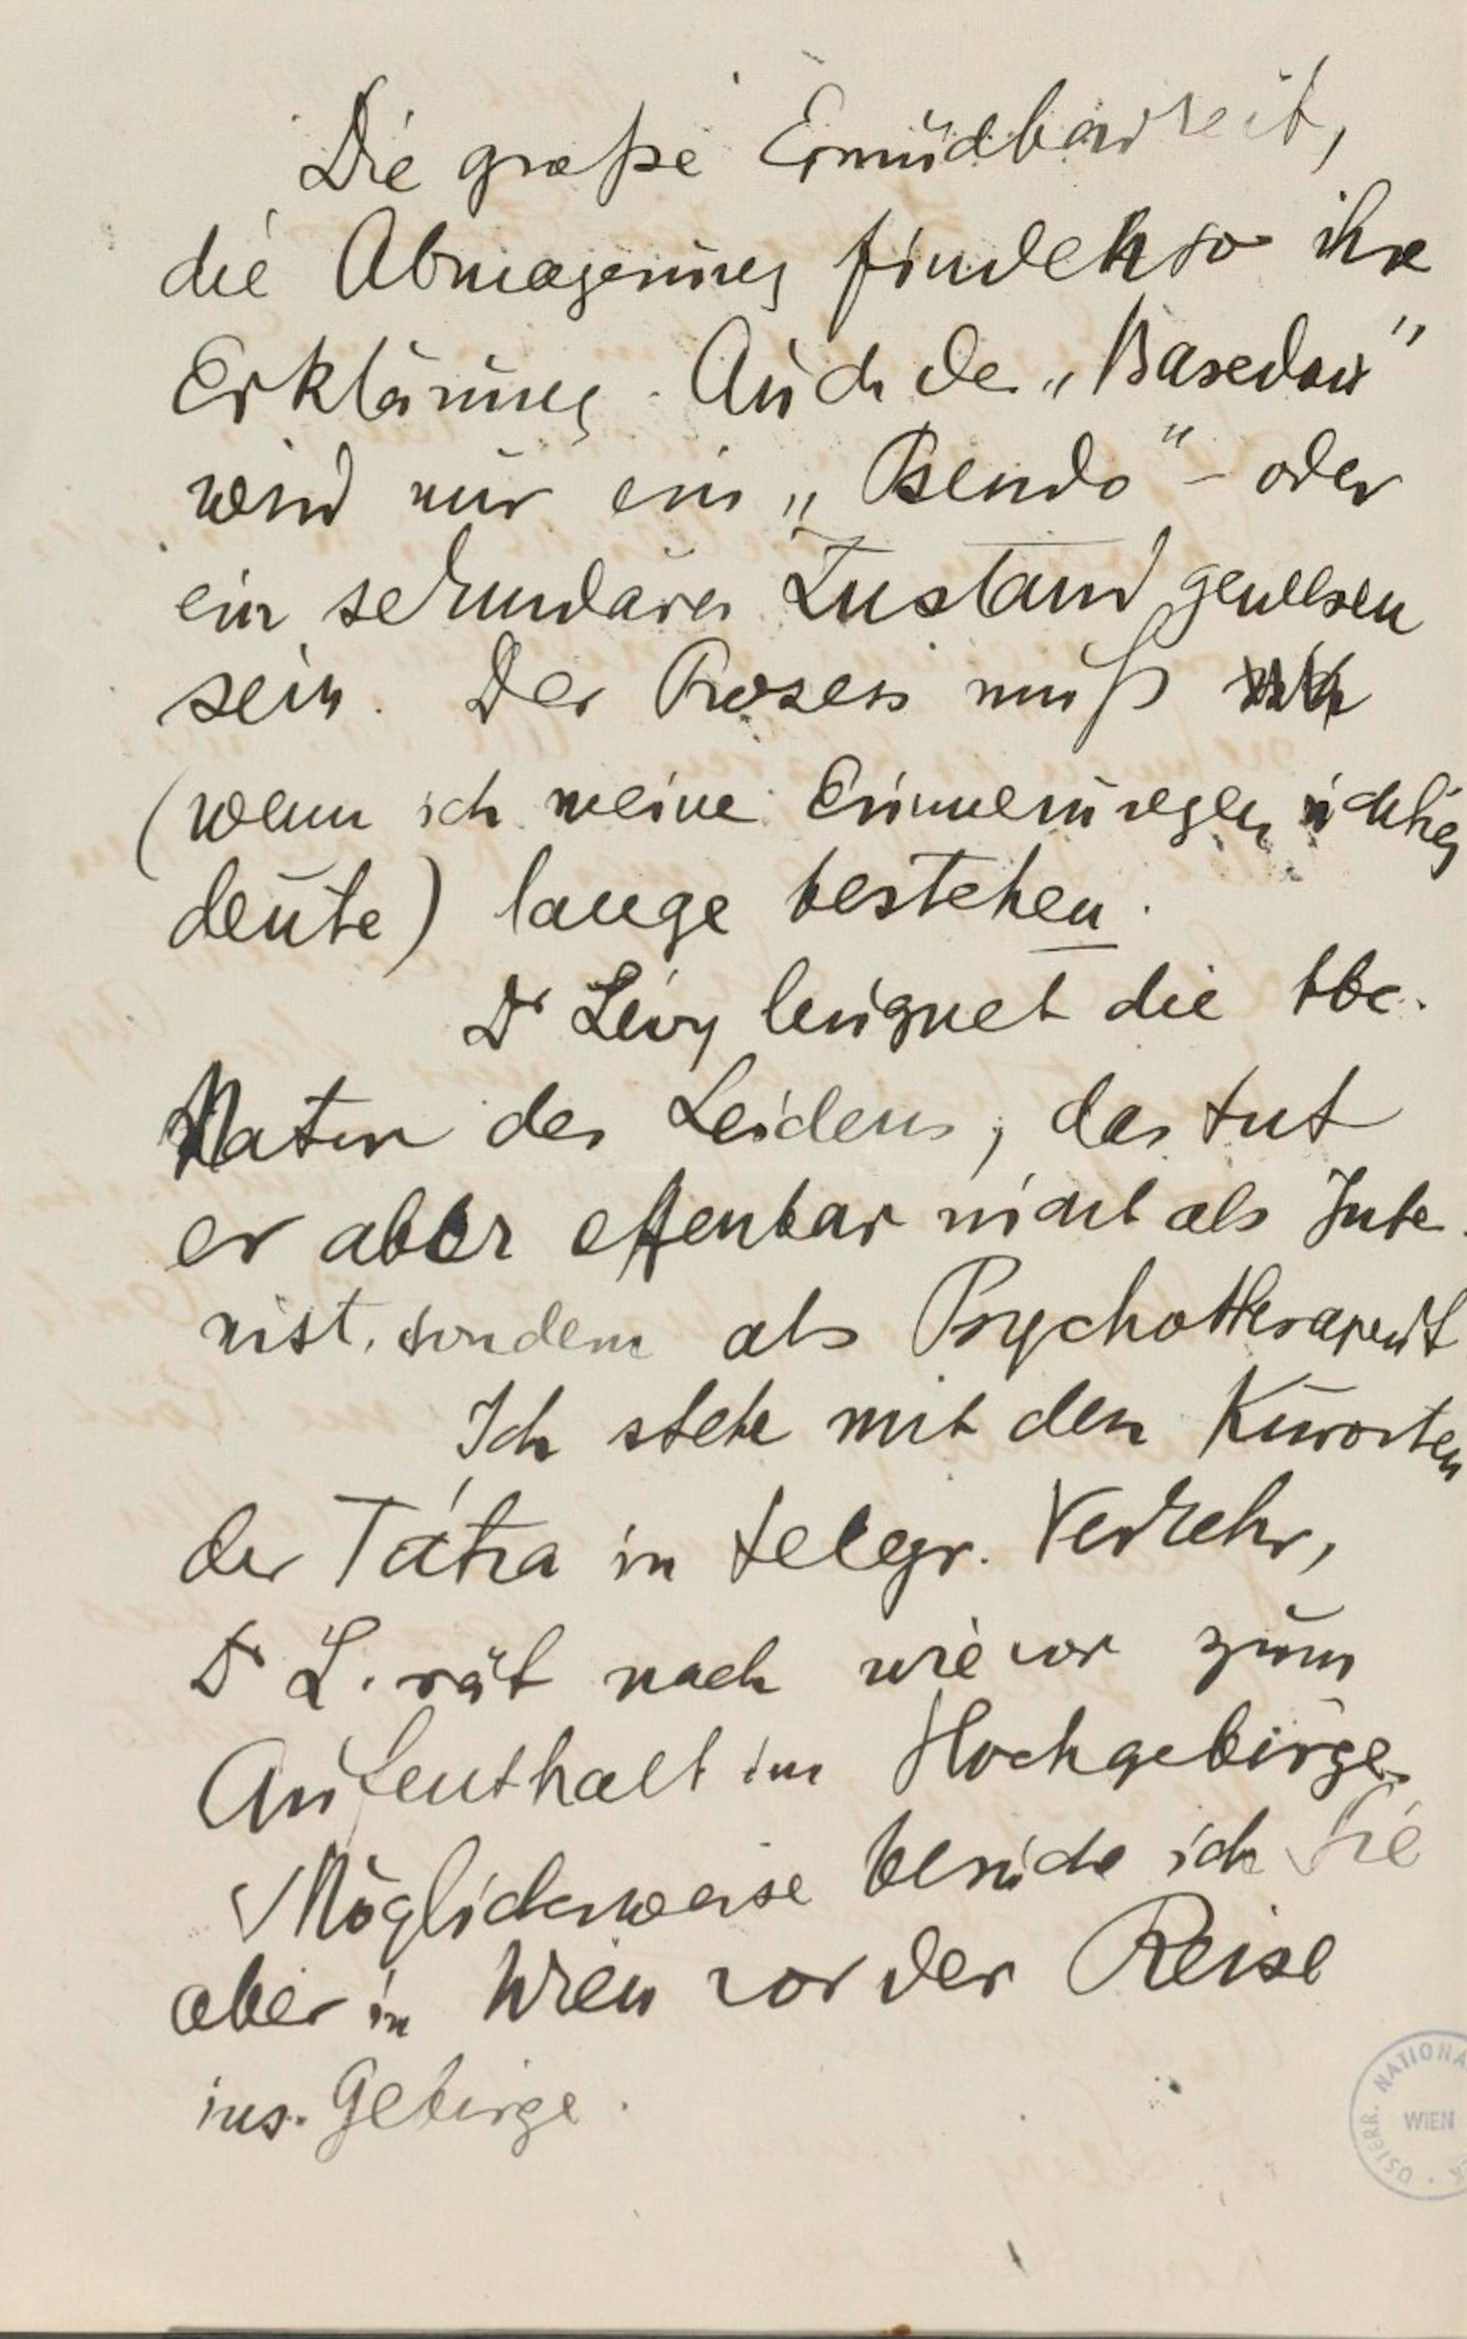 Die große Ermüdbarkeit,
die Abmagerung finden so ihre
Erklärung. Auch der „Basedow"
wird nur ein „Pseudo" - oder
ein sekundärer Zustand gewesen
sein. Der Prozess muß
(wenn ich meine Erinnerungen richtig
deute) lange bestehen.
Dr Lévy leugnet die tbc.
Natur des Leidens, das tut
er aber offenbar nicht als Inter-
nist, sondern als Psychotherapeut
Ich stehe mit den Kurorten
der Tátra in telegr. Verkehr,
Dr L. rät nach wie vor zum
Aufenthalt im Hochgebirge.
Möglicherweise besuche ich Sie
aber in Wien vor der Reise
ins Gebirge.
ÖSTERR. NATIONA
WIEN